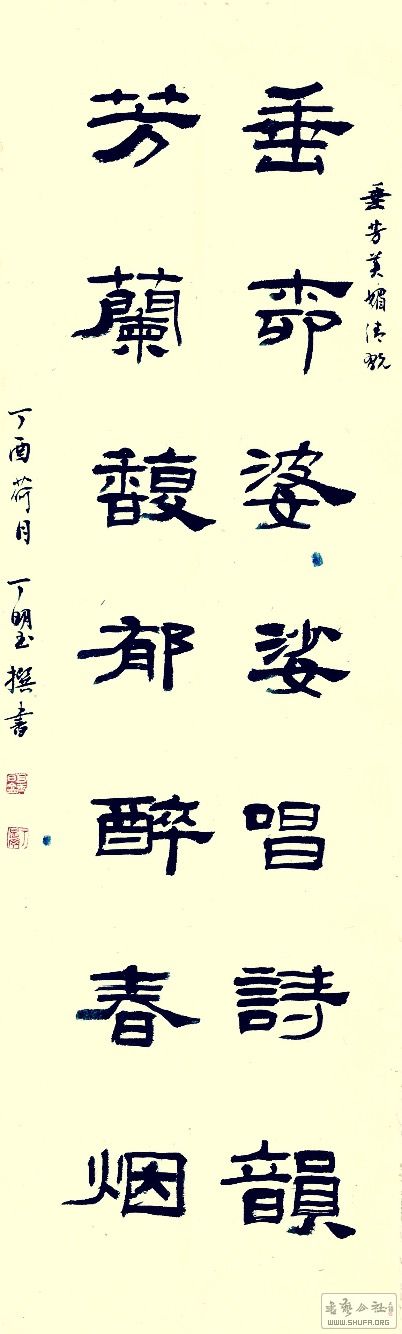 垂芳美媚清玩
垂柳婆娑唱詩韻
芳蘭馥郁醉春烟
丁酉荷月 丁明玉撰書
书艺公社
WWW.SHUFA.ORG